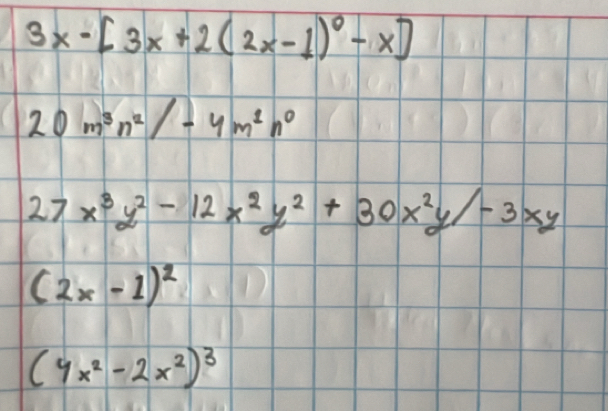 3x-[3x+2(2x-1)⁰-x]
20 m³n²/-4m²n⁰
27x³y²-12x²y²+30x²y/-3xy
(2x-1)²
(4x²-2x²)³